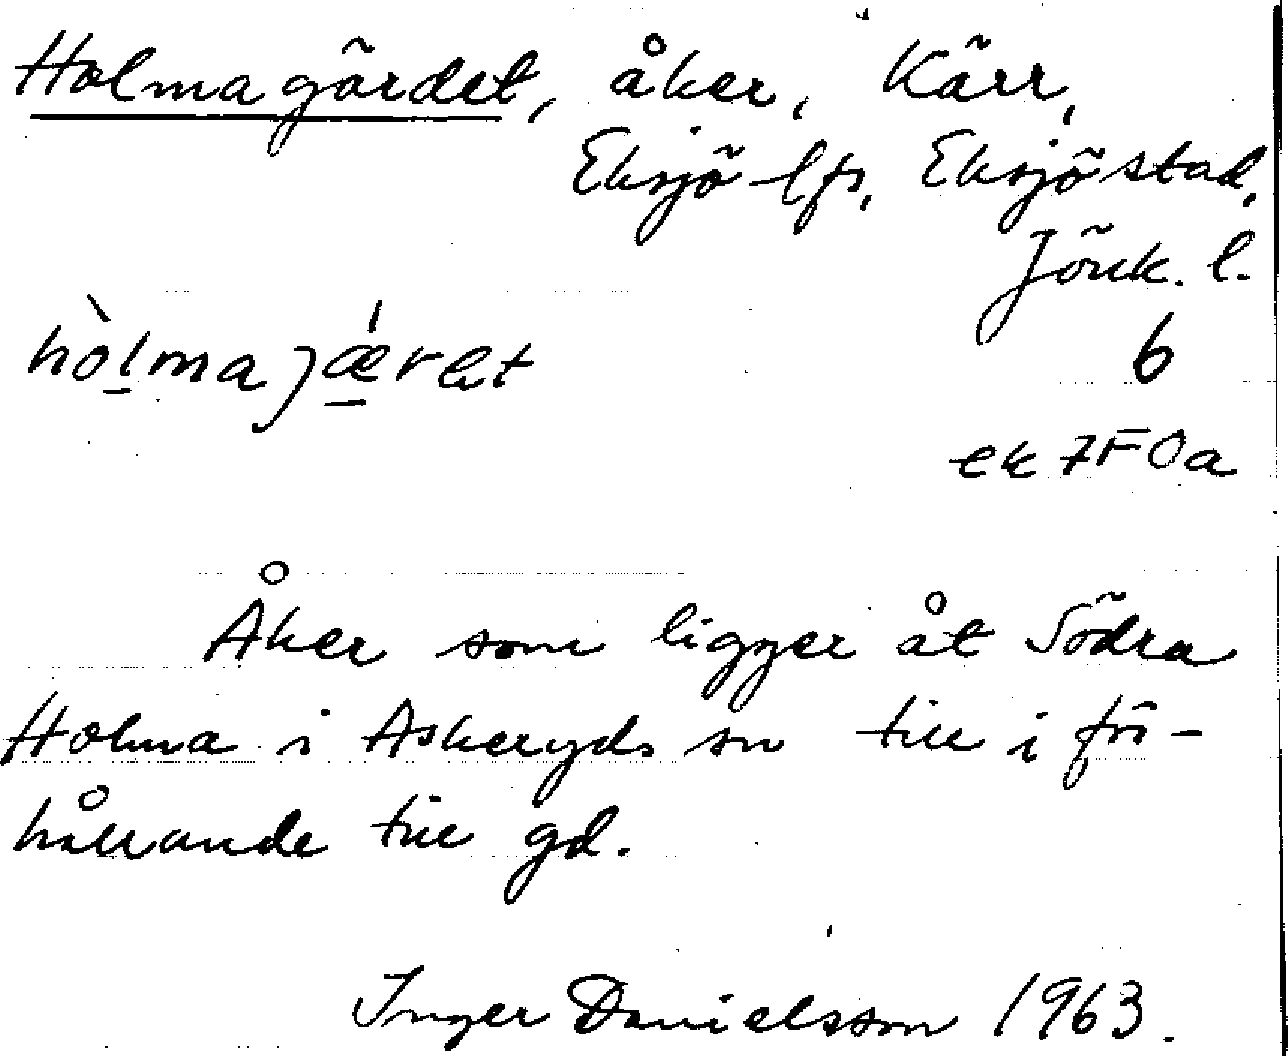 Holmagärdet, åker, Kärr,
Eksjö lfs, Eksjö stad,
Jönk. l.
hòlmajǽret
6
ek 7F0a
Åker som ligger åt Södra
Holma i Askeryds sn till i för-
hållande till gd.
Inger Danielsson 1963.